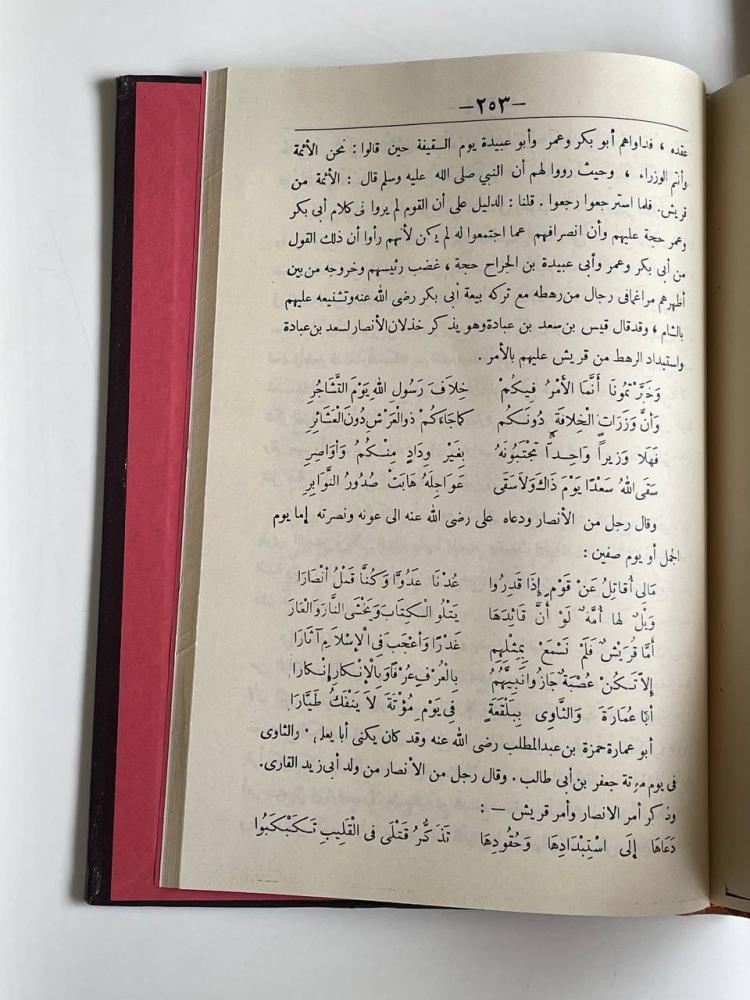 —٢٥٣—
عقده ، فداواهم أبو بكر وعمر وأبو عبيدة يوم السقيفة حين قالوا : نحن الأئمة
وأنتم الوزراء ، وحيث رووا لهم أن النبي صلى الله عليه وسلم قال : الأئمة من
قريش. فلما استرجعوا رجعوا . قلنا : الدليل على أن القوم لم يروا فى كلام أبى بكر
وعمر حجة عليهم وأن انصرافهم عما اجتمعوا له لم يكن لأنهم رأوا أن ذلك القول
من أبى بكر وعمر وأبى عبيدة بن الجراح حجة ، غضب رئيسهم وخروجه من بين
أظهرهم مراغما فى رجال من رهطه مع تركه بيعة أبى بكر رضى الله عنه وتشنيعه عليهم
بالشام ، وقد قال قيس بن سعد بن عبادة وهو يذكر خذلان الأنصار لسعد بن عبادة
واستبداد الرهط من قريش عليهم بالأمر .
وَخَبَّرْتمُونَا أَنَّمَا الأَمْرُ فِيكُمْ خِلاَفَ رَسُولِ اللهِ يَوْمَ التَّشَاجُرِ
وَأَنَّ وَزَرَاتِ الْخِلافَةِ دُونَكُم كَمَا جَاءَكُمْ ذو الْعَرْشِ دُونَ الْعَشَائِرِ
فَهَلا وَزيراً وَاحِداً تَجْتَبُونَهُ بِغَيْرِ وِدَادٍ مِنْكُمُ وَأَوَاصِرِ
سَقَى اللهُ سَعْدًا يَوْمَ ذَاكَ وَلاَ سَقَى عَوَاجِلَهُ هَابَتْ صُدُورَ النَّوَابِرِ
وقال رجل من الأنصار ودعاه على رضى الله عنه الى عونه ونصرته إما يوم
الجمل أو يوم صفين :
مَالِى أُقَاتِلُ عَنْ قَوْمٍ إِذَا قَدِرُوا عُدْنَا عَدُوًّا وَكُنَّا قَبْلُ أَنْصَارَا
وَيْلٌ لها أُمَّةً لَوْ أَنَّ قَائِدَهَا يَتْلُو الْكِتَابَ وَيَخْشَى النَّارَ وَالْعَارَ
أَمَّا قُرَيْشٌ فَلَمْ نَسْمَعْ بِمِثْلِهِمِ غَدْرًا وَأَعْجَبَ فِى الْإِسْلاَمِ آثَارَا
إِلاَّ تَكُنْ عُصْبَةٌ جَازُوا نَبِيَّهُمُ بِالْعُرْفِ عُرْفًا وَبِالْإِنْكَارِ إِنْكَارا
أَبَا عُمَارَةَ وَالثَّاوِى بِبَلْقَعَةٍ فِى يَوْمِ مُؤْتَةَ لاَ يَنْفَكُّ طَيَّارَا
أبو عمارة حمزة بن عبد المطلب رضى الله عنه وقد كان يكنى أبا يعلى . والثاوى
فى يوم مؤتة جعفر بن أبى طالب . وقال رجل من الأنصار من ولد أبى زيد القارى.
وذكر أمر الانصار وأمر قريش — :
دَعَاهَا إِلَى اسْتِبْدَادِهَا وَحُقُودِهَا تَذَكُّرُ قَتْلَى فِى الْقَلِيبِ تَكَبْكَبُوا